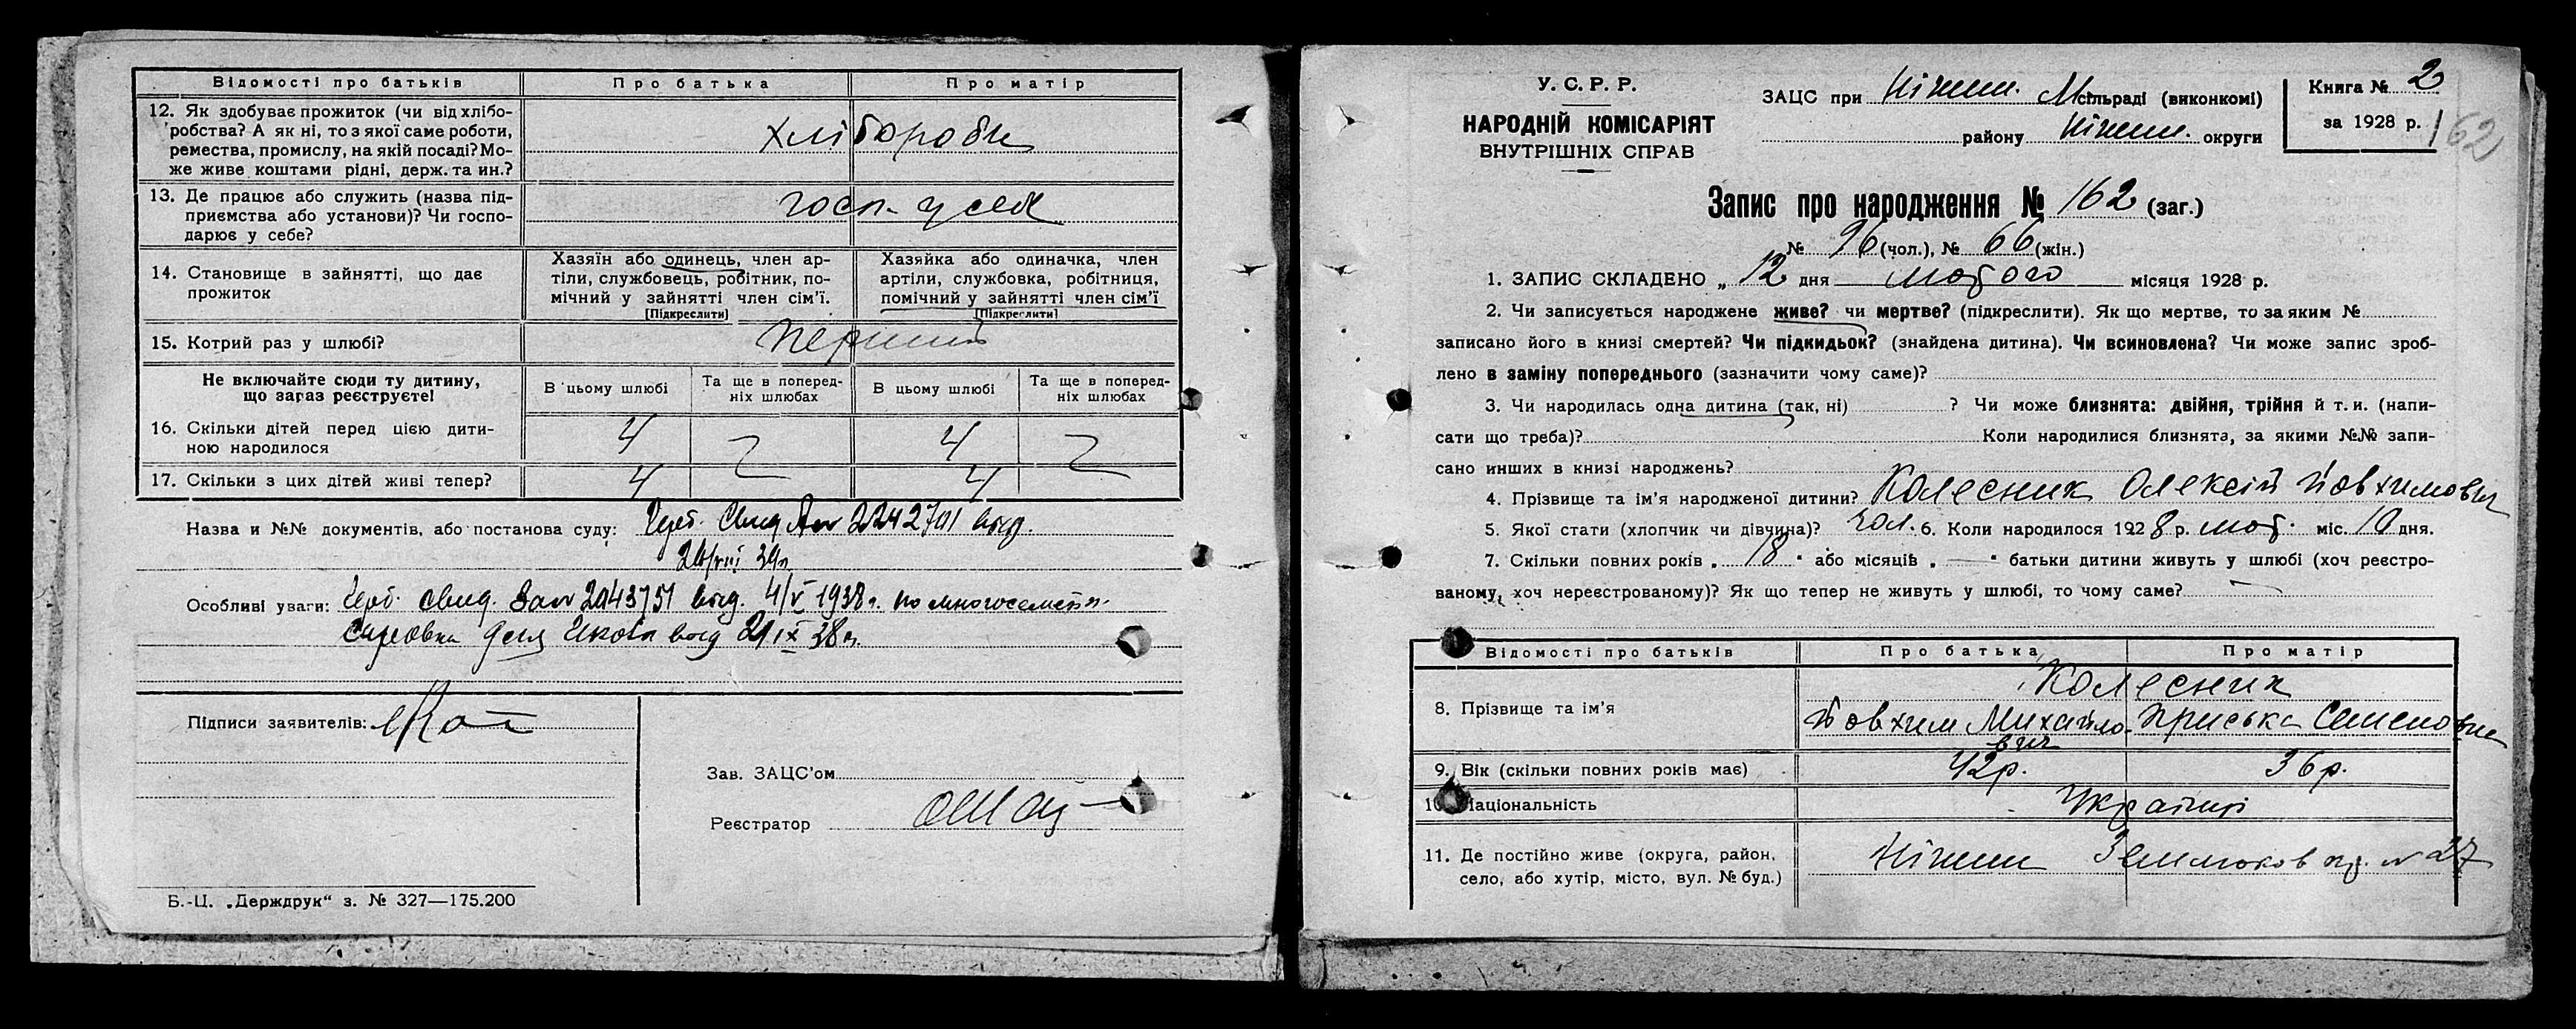 Відомості про батьків Про батька Про матір
12. Як здобуває прожиток (чи від хлібо-
робства? А як ні, то з якої саме роботи,
ремества, промислу, на якій посаді? Мо-
же живе коштами рідні, держ. та ин.?
хлібороби
13. Де працює або служить (назва під-
приємства або установи)? Чи госпо-
дарює у себе?
госп. у себе
14. Становище в зайнятті, що дає
прожиток
Хазяїн або одинець, член ар-
тіли, службовець, робітник, по-
мічний у зайнятті член сім'ї.
[Підкреслити]
Хазяйка або одиначка, член
артіли, службовка, робітниця,
помічний у зайнятті член сім'ї
[Підкреслити]
15. Котрий раз у шлюбі?
перший
Не включайте сюди ту дитину,
що зараз реєструєте!
В цьому шлюбі
Та ще в поперед-
ніх шлюбах
В цьому шлюбі
Та ще в поперед-
ніх шлюбах
16. Скільки дітей перед цією дити-
ною народилося
4 4
17. Скільки з цих дітей живі тепер?
4 4
Назва и №№ документів, або постанова суду:
Особливі уваги: 4/V 1938 г.
Підписи заявителів:
Зав. ЗАЦС'ом
Реєстратор
Б.-Ц. „Держдрук" з. № 327—175.200
У. С. Р. Р.
НАРОДНІЙ КОМІСАРІЯТ
ВНУТРІШНІХ СПРАВ
ЗАЦС при Ніжин. М сільраді (виконкомі)
району Ніжин. округи
Книга № 2
за 1928 р.
162
Запис про народження № 162 (заг.)
№ 96 (чол.), № 66 (жін.)
1. ЗАПИС СКЛАДЕНО „ 12 дня лютого місяця 1928 р.
2. Чи записується народжене живе? чи мертве? (підкреслити). Як що мертве, то за яким №
записано його в книзі смертей? Чи підкидьок? (знайдена дитина). Чи всиновлена? Чи може запис зроб-
лено в заміну попереднього (зазначити чому саме)?
3. Чи народилась одна дитина (так, ні) ? Чи може близнята: двійня, трійня й т. и. (напи-
сати що треба)? Коли народилися близнята, за якими №№ запи-
сано инших в книзі народжень?
4. Прізвище та ім'я народженої дитини? Колесник Олексій Йовхимович
5. Якої стати (хлопчик чи дівчина)? чол. 6. Коли народилося 1928 р. лют. міс. 10 дня.
7. Скільки повних років „ 18 " або місяців „ — " батьки дитини живуть у шлюбі (хоч реєстро-
ваному, хоч нереєстрованому)? Як що тепер не живуть у шлюбі, то чому саме?
Відомості про батьків Про батька Про матір
Колесник
8. Прізвище та ім'я
Йовхим Михайло-
вич
Приська Семеновна
9. Вік (скільки повних років має) 42 р. 36 р.
10. Національність Українці
11. Де постійно живе (округа, район,
село, або хутір, місто, вул. № буд.)
Ніжин № 27